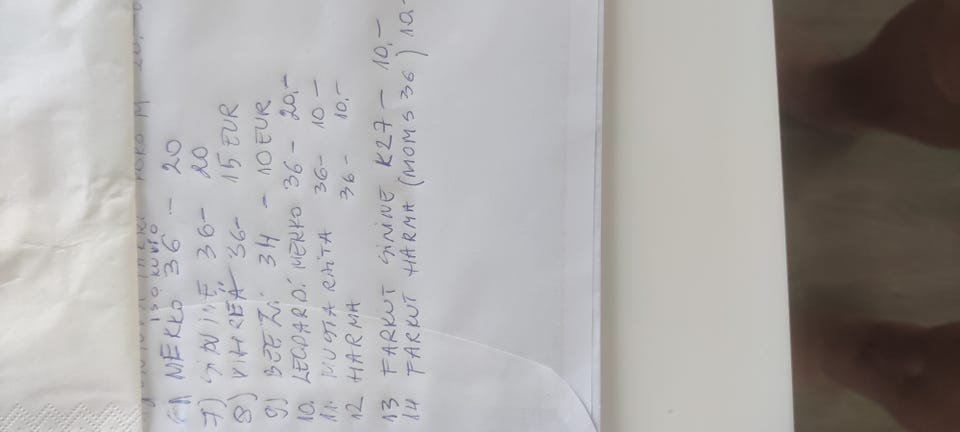 ISO KUVIO
6) MEKKO 36 - 20
7) 36 - 20
8) VIHREÄ 36 - 15 EUR
9) BEEZI 34 - 10 EUR
10. LEOPARDI MEKKO 36 - 20,-
11. MUSTA RAITA 36 - 10 -
12 HARMA 36 - 10,-
13 FARKUT SININE K27 - 10,-
14 FARKUT HARMA (MOMS 36) 10 -